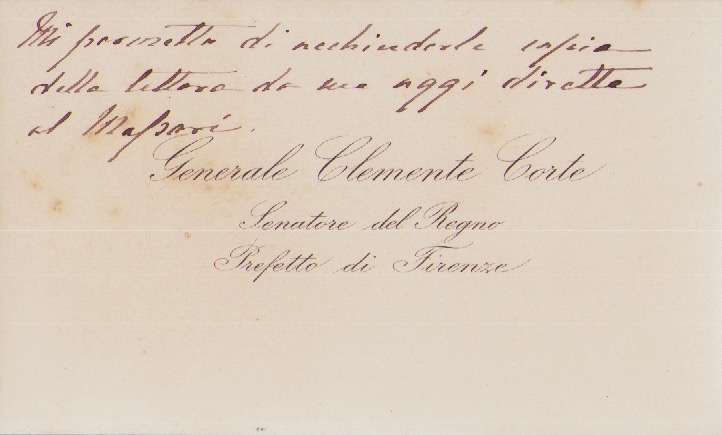 Mi permetta di acchiuderle copia
della lettera da me oggi diretta
al Massari.
Generale Clemente Corte
Senatore del Regno
Prefetto di Firenze